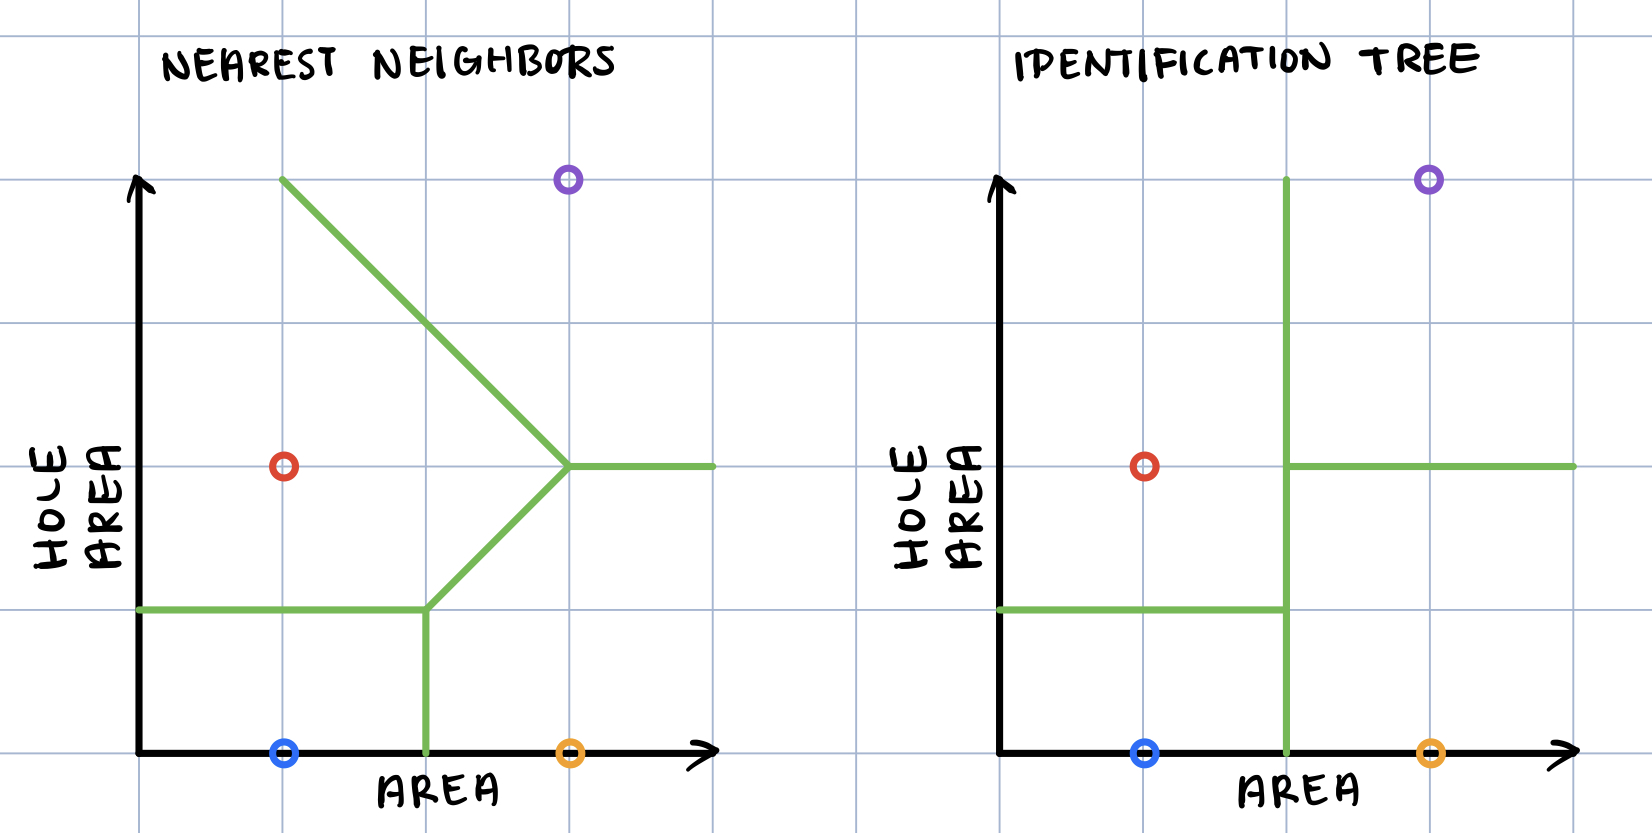 NEAREST NEIGHBORS
HOLE
AREA
AREA
IDENTIFICATION TREE
HOLE
AREA
AREA